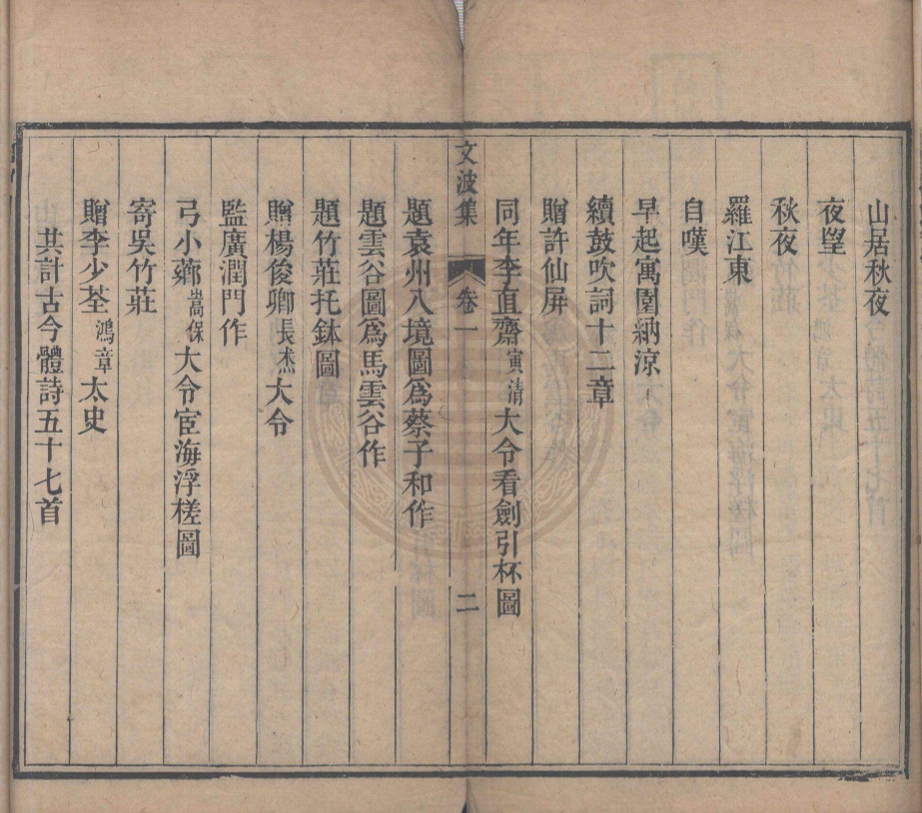 山居秋夜
夜望
秋夜
羅江東
自嘆
早起寓園納涼
續鼓吹詞十二章
贈許仙屏
同年李直齋寅清大令看劍引杯圖
文波集 卷一 二
題袁州八境圖爲蔡子和作
題雲谷圖爲馬雲谷作
題竹莊托鉢圖
贈楊俊卿長杰大令
監廣潤門作
弓小薌嵩保大令宦海浮槎圖
寄吳竹莊
贈李少荃鴻章太史
共計古今體詩五十七首